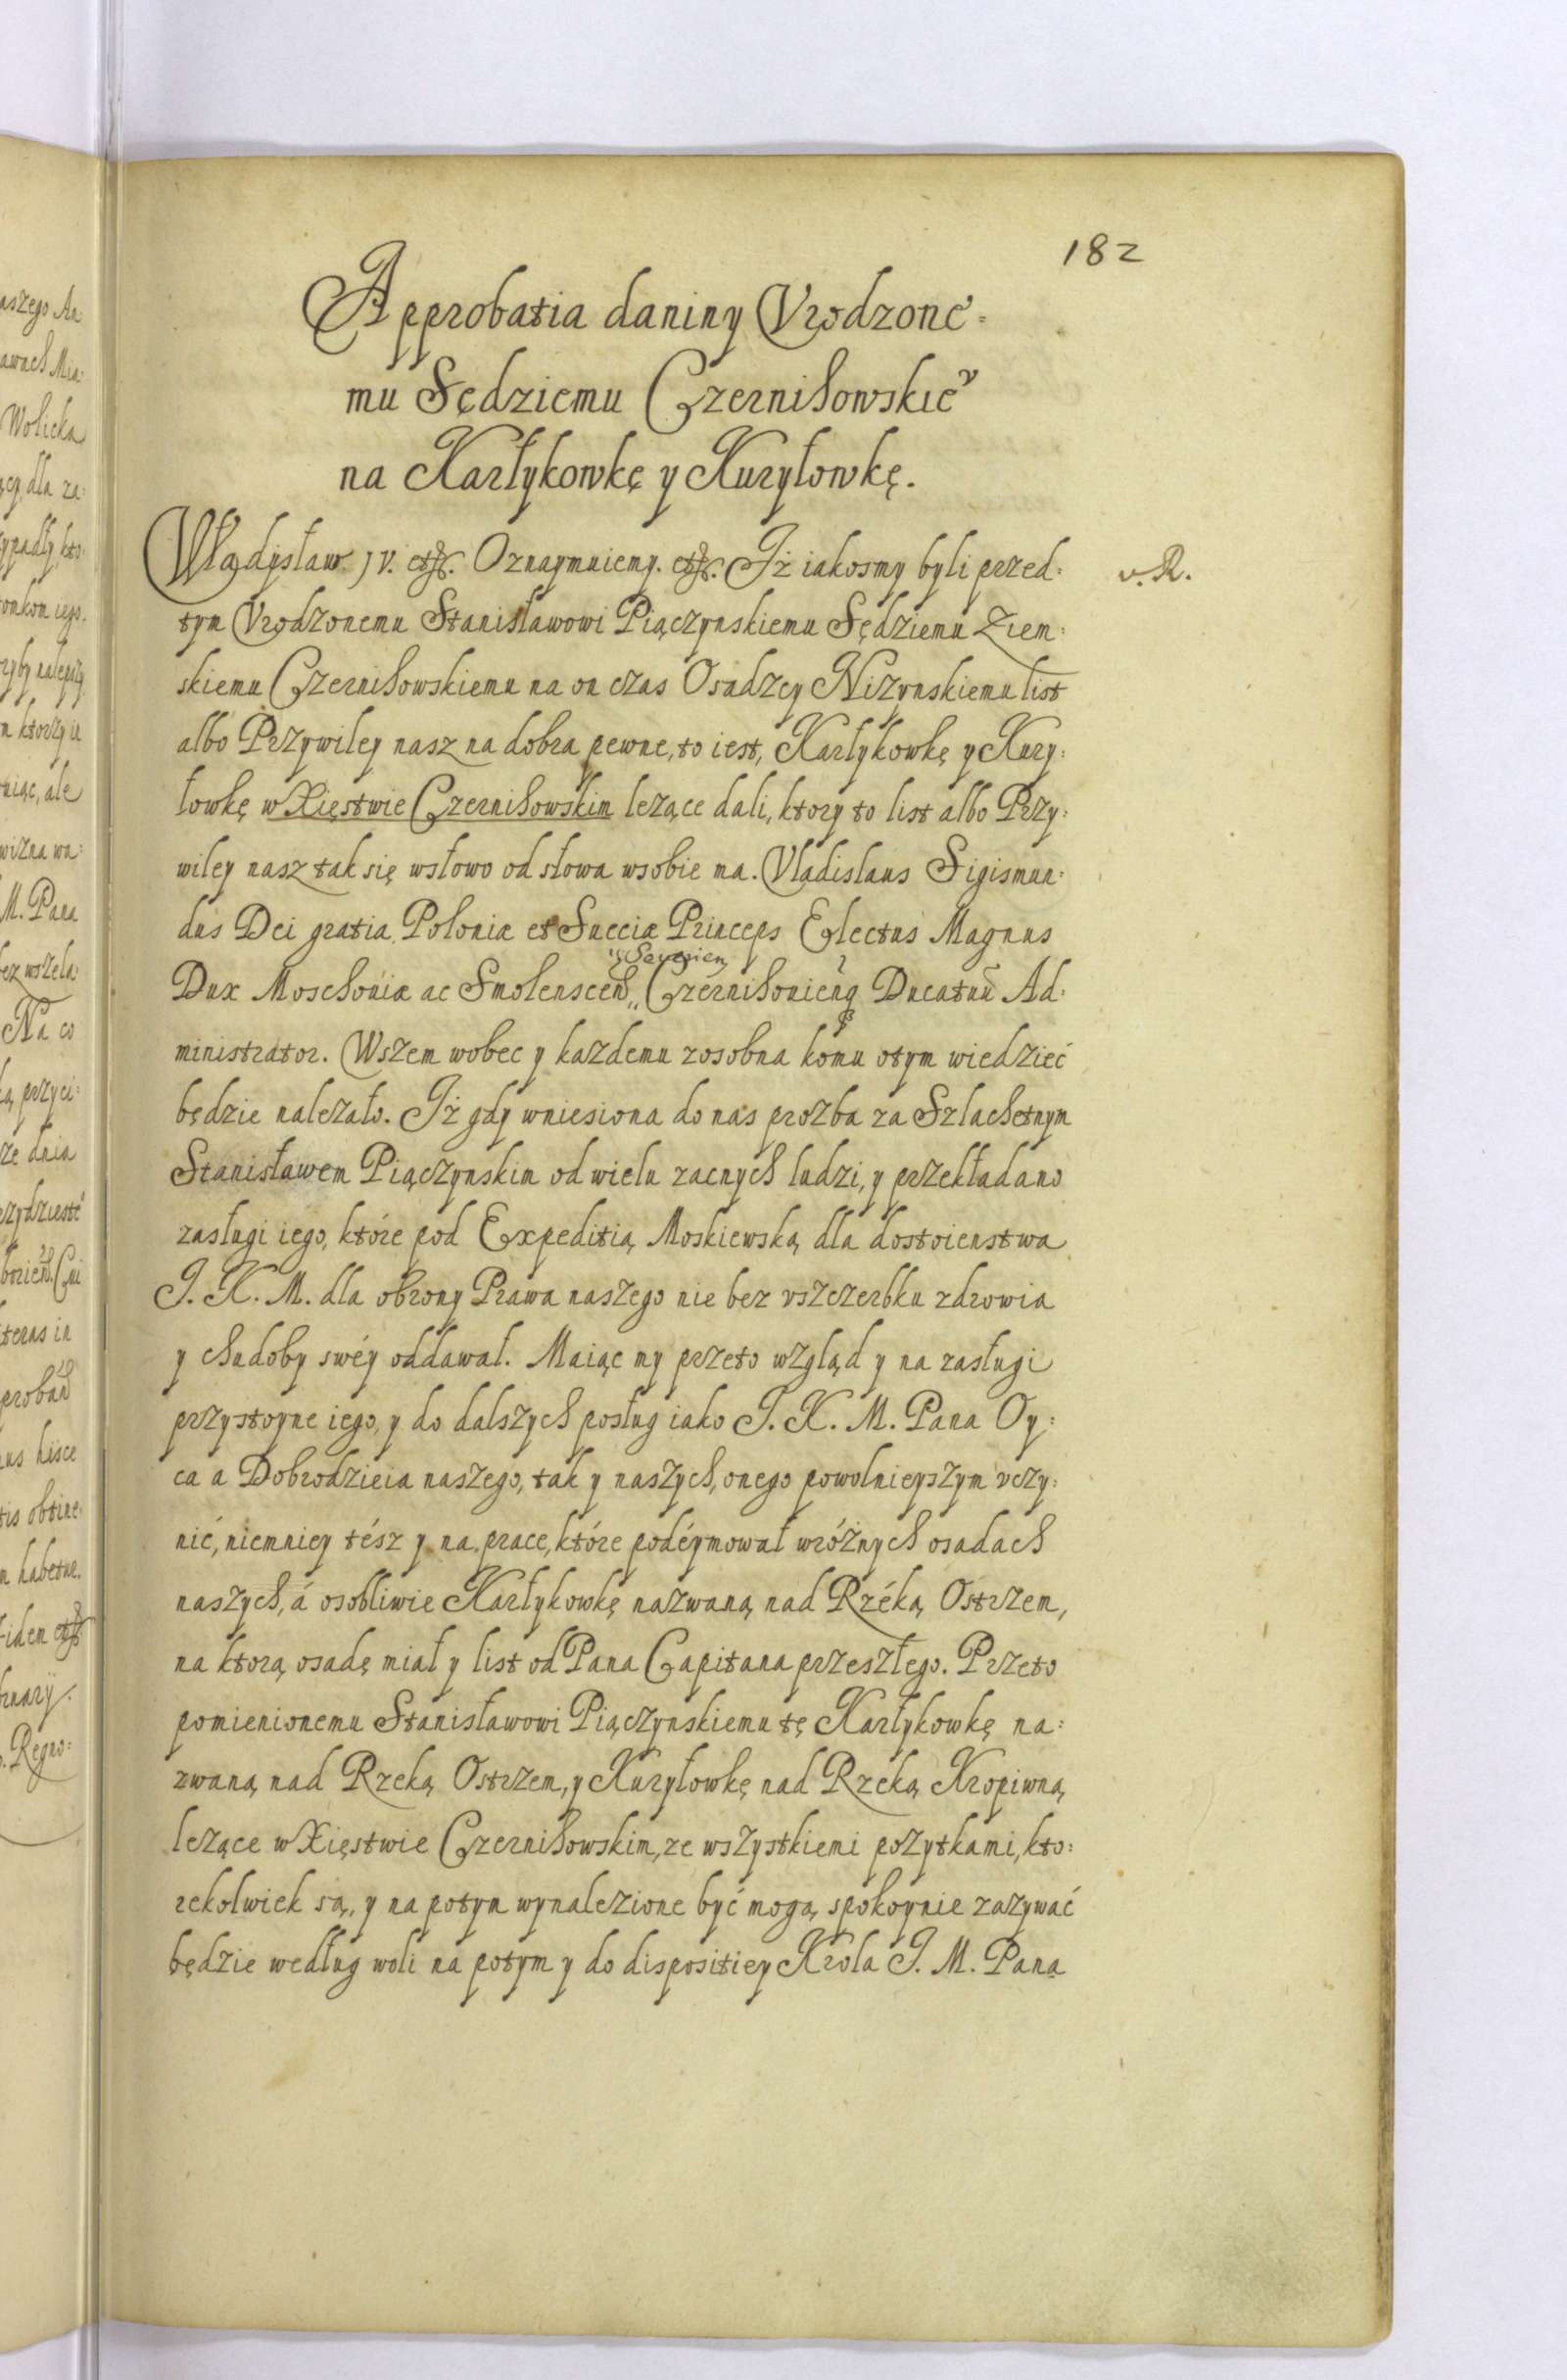 182
Approbatia daniny Vrodzone=
mu Sędziemu Czernihowskie͛
na Karłykowkę y Kuryłowkę.
Władysław. IV. etc. Oznaymuiemy. etc. Iż iakosmy byli przed= v. R.
tym Vrodzonemu Stanisławowi Piączynskiemu Sędziemu Ziem=
skiemu Czernihowskiemu na on czas Osadzcy Nizynskiemu list
albo Przywiley nasz na dobra pewne, to iest, Karłykowkę y Kury=
łowkę w Xięstwie Czernihowskim lezące dali, ktory to list albo Przy=
wiley nasz tak się wsłowo od słowa wsobie ma. Vladislaus Sigismun=
dus Dei gratia Poloniæ et Sueciæ Princeps Electus Magnus
Severien,
Dux Moschouiæ ac Smolenscen,, Czernihouienq Ducatuū Ad=
ministrator. Wszem wobec y kazdemu zosobna komu otym wiedzieć
będzie nalezało. Iż gdy wniesiona do nas prozba za Szlachetnym
Stanisławem Piączynskim od wielu zacnych ludzi, y przekładano
zasługi iego, które pod Expeditią Moskiewską dla dostoienstwa
I. K. M. dla obrony Prawa naszego nie bez vszczerbku zdrowia
y chudoby swéy oddawał. Maiąc my przeto wzgląd y na zasługi
przystoyne iego, y do dalszych posług iako I. K. M. Pana Oy=
ca a Dobrodzieia naszego, tak y naszych, onego powolnieyszym vczy=
nić, niemniey tész y na prace, które podéymował wróżnych osadach
naszych, á osobliwie Karłykowkę nazwaną nad Rzéką Ostrzem,
na ktorą osadę miał y list od Pana Capitana przeszłego. Przeto
pomienionemu Stanisławowi Piączynskiemu tę Karłykowkę na=
zwaną nad Rzeką Ostrzem, y Kuryłowkę nad Rzéką Kropiwną
lezące w Xięstwie Czernihowskim, ze wszystkiemi pozytkami, kto=
rekolwiek są, y na potym wynalezione być mogą spokoynie zazywać
będzie według woli na potym y do dispositiey Krola I. M. Pana